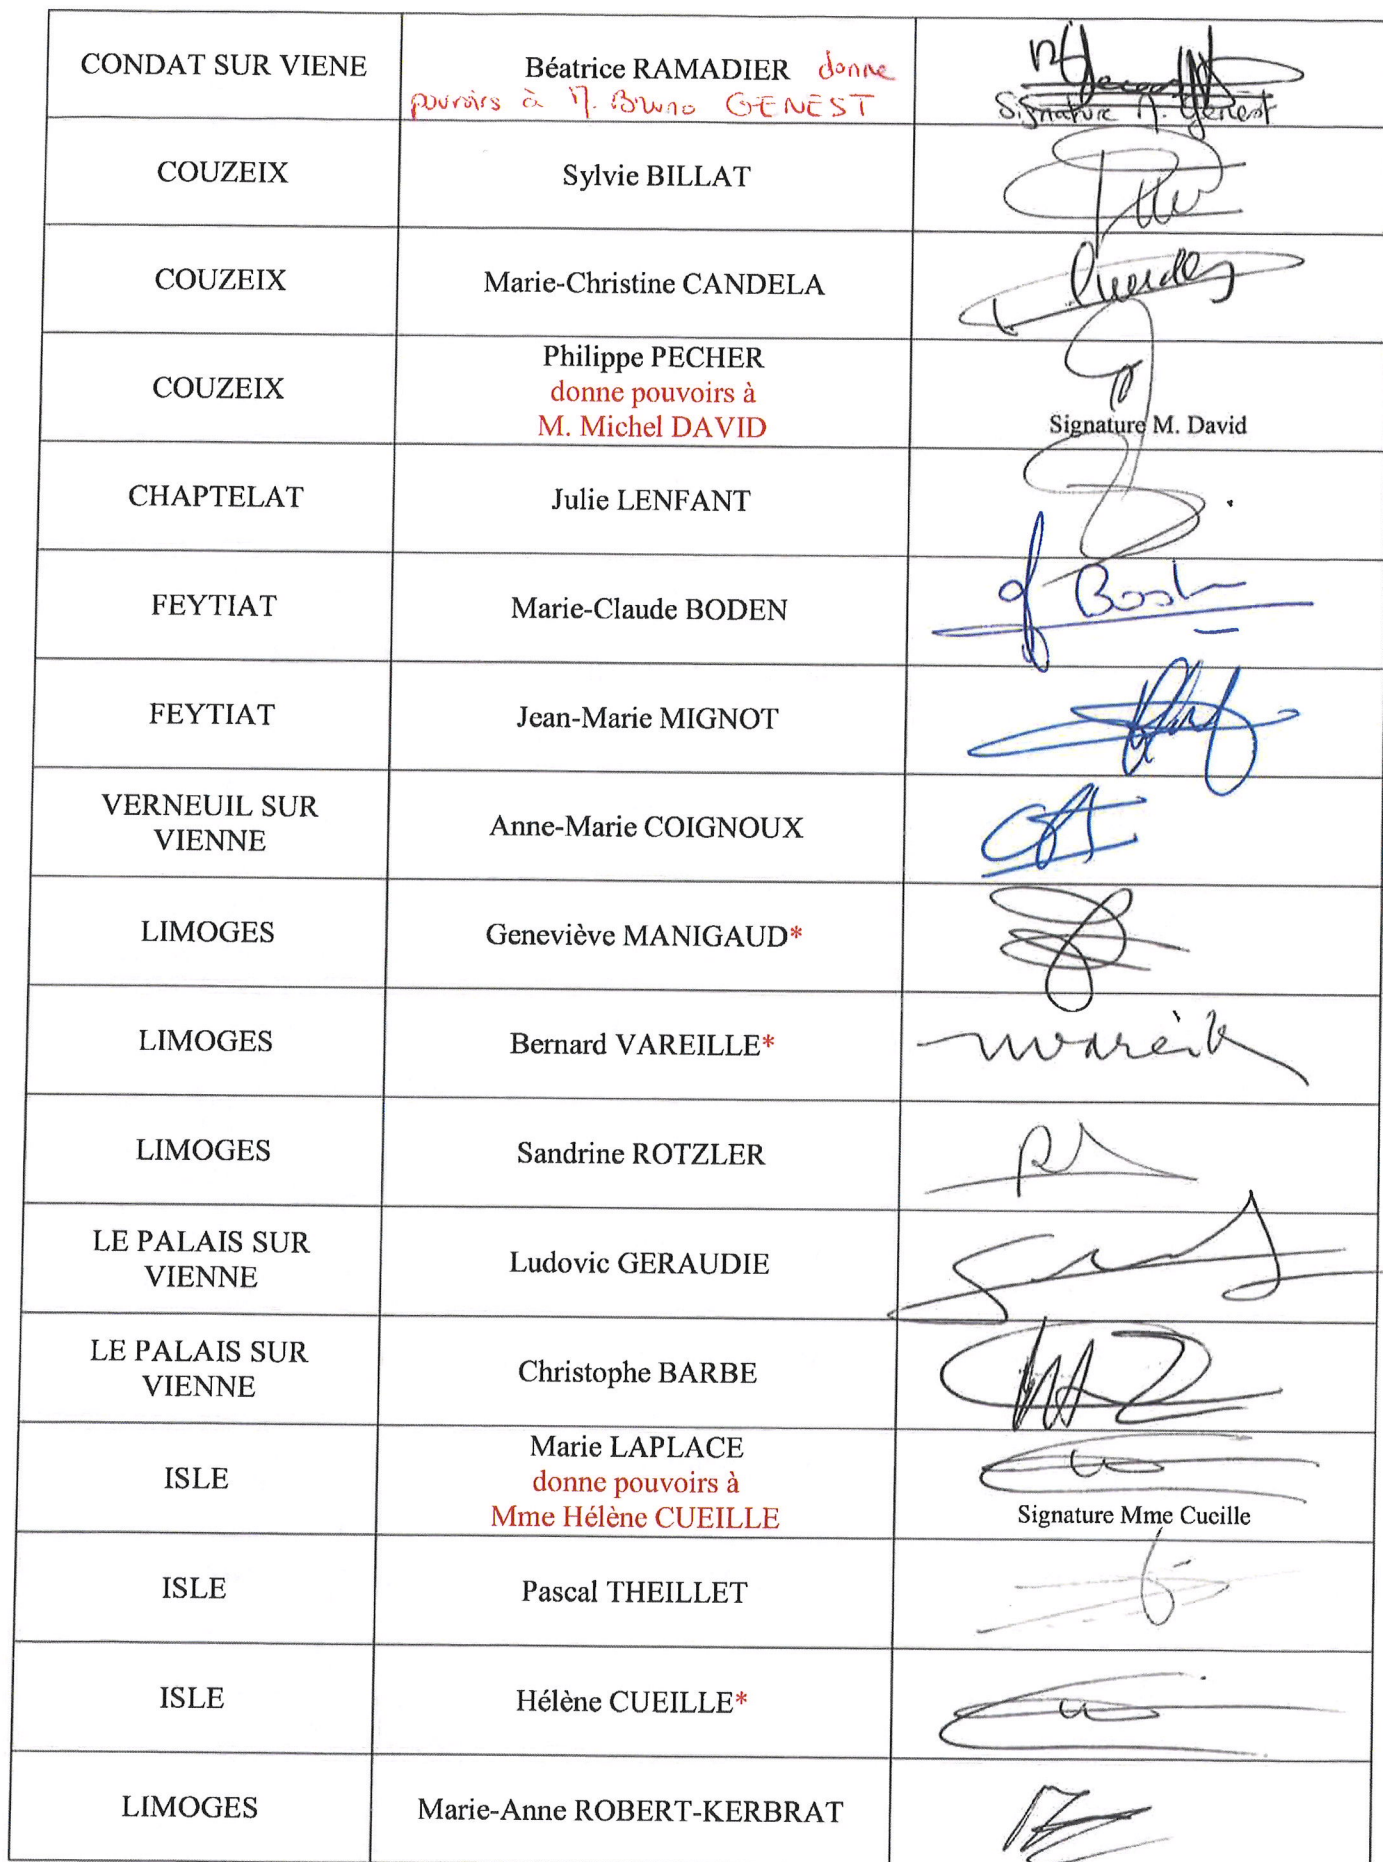 CONDAT SUR VIENE
Béatrice RAMADIER donne
pouvoirs à M. Bruno GENEST
Signature M. Genest
COUZEIX
Sylvie BILLAT
COUZEIX
Marie-Christine CANDELA
COUZEIX
Philippe PECHER
donne pouvoirs à
M. Michel DAVID
Signature M. David
CHAPTELAT
Julie LENFANT
FEYTIAT
Marie-Claude BODEN
FEYTIAT
Jean-Marie MIGNOT
VERNEUIL SUR
VIENNE
Anne-Marie COIGNOUX
LIMOGES
Geneviève MANIGAUD*
LIMOGES
Bernard VAREILLE*
LIMOGES
Sandrine ROTZLER
LE PALAIS SUR
VIENNE
Ludovic GERAUDIE
LE PALAIS SUR
VIENNE
Christophe BARBE
ISLE
Marie LAPLACE
donne pouvoirs à
Mme Hélène CUEILLE
Signature Mme Cueille
ISLE
Pascal THEILLET
ISLE
Hélène CUEILLE*
LIMOGES
Marie-Anne ROBERT-KERBRAT